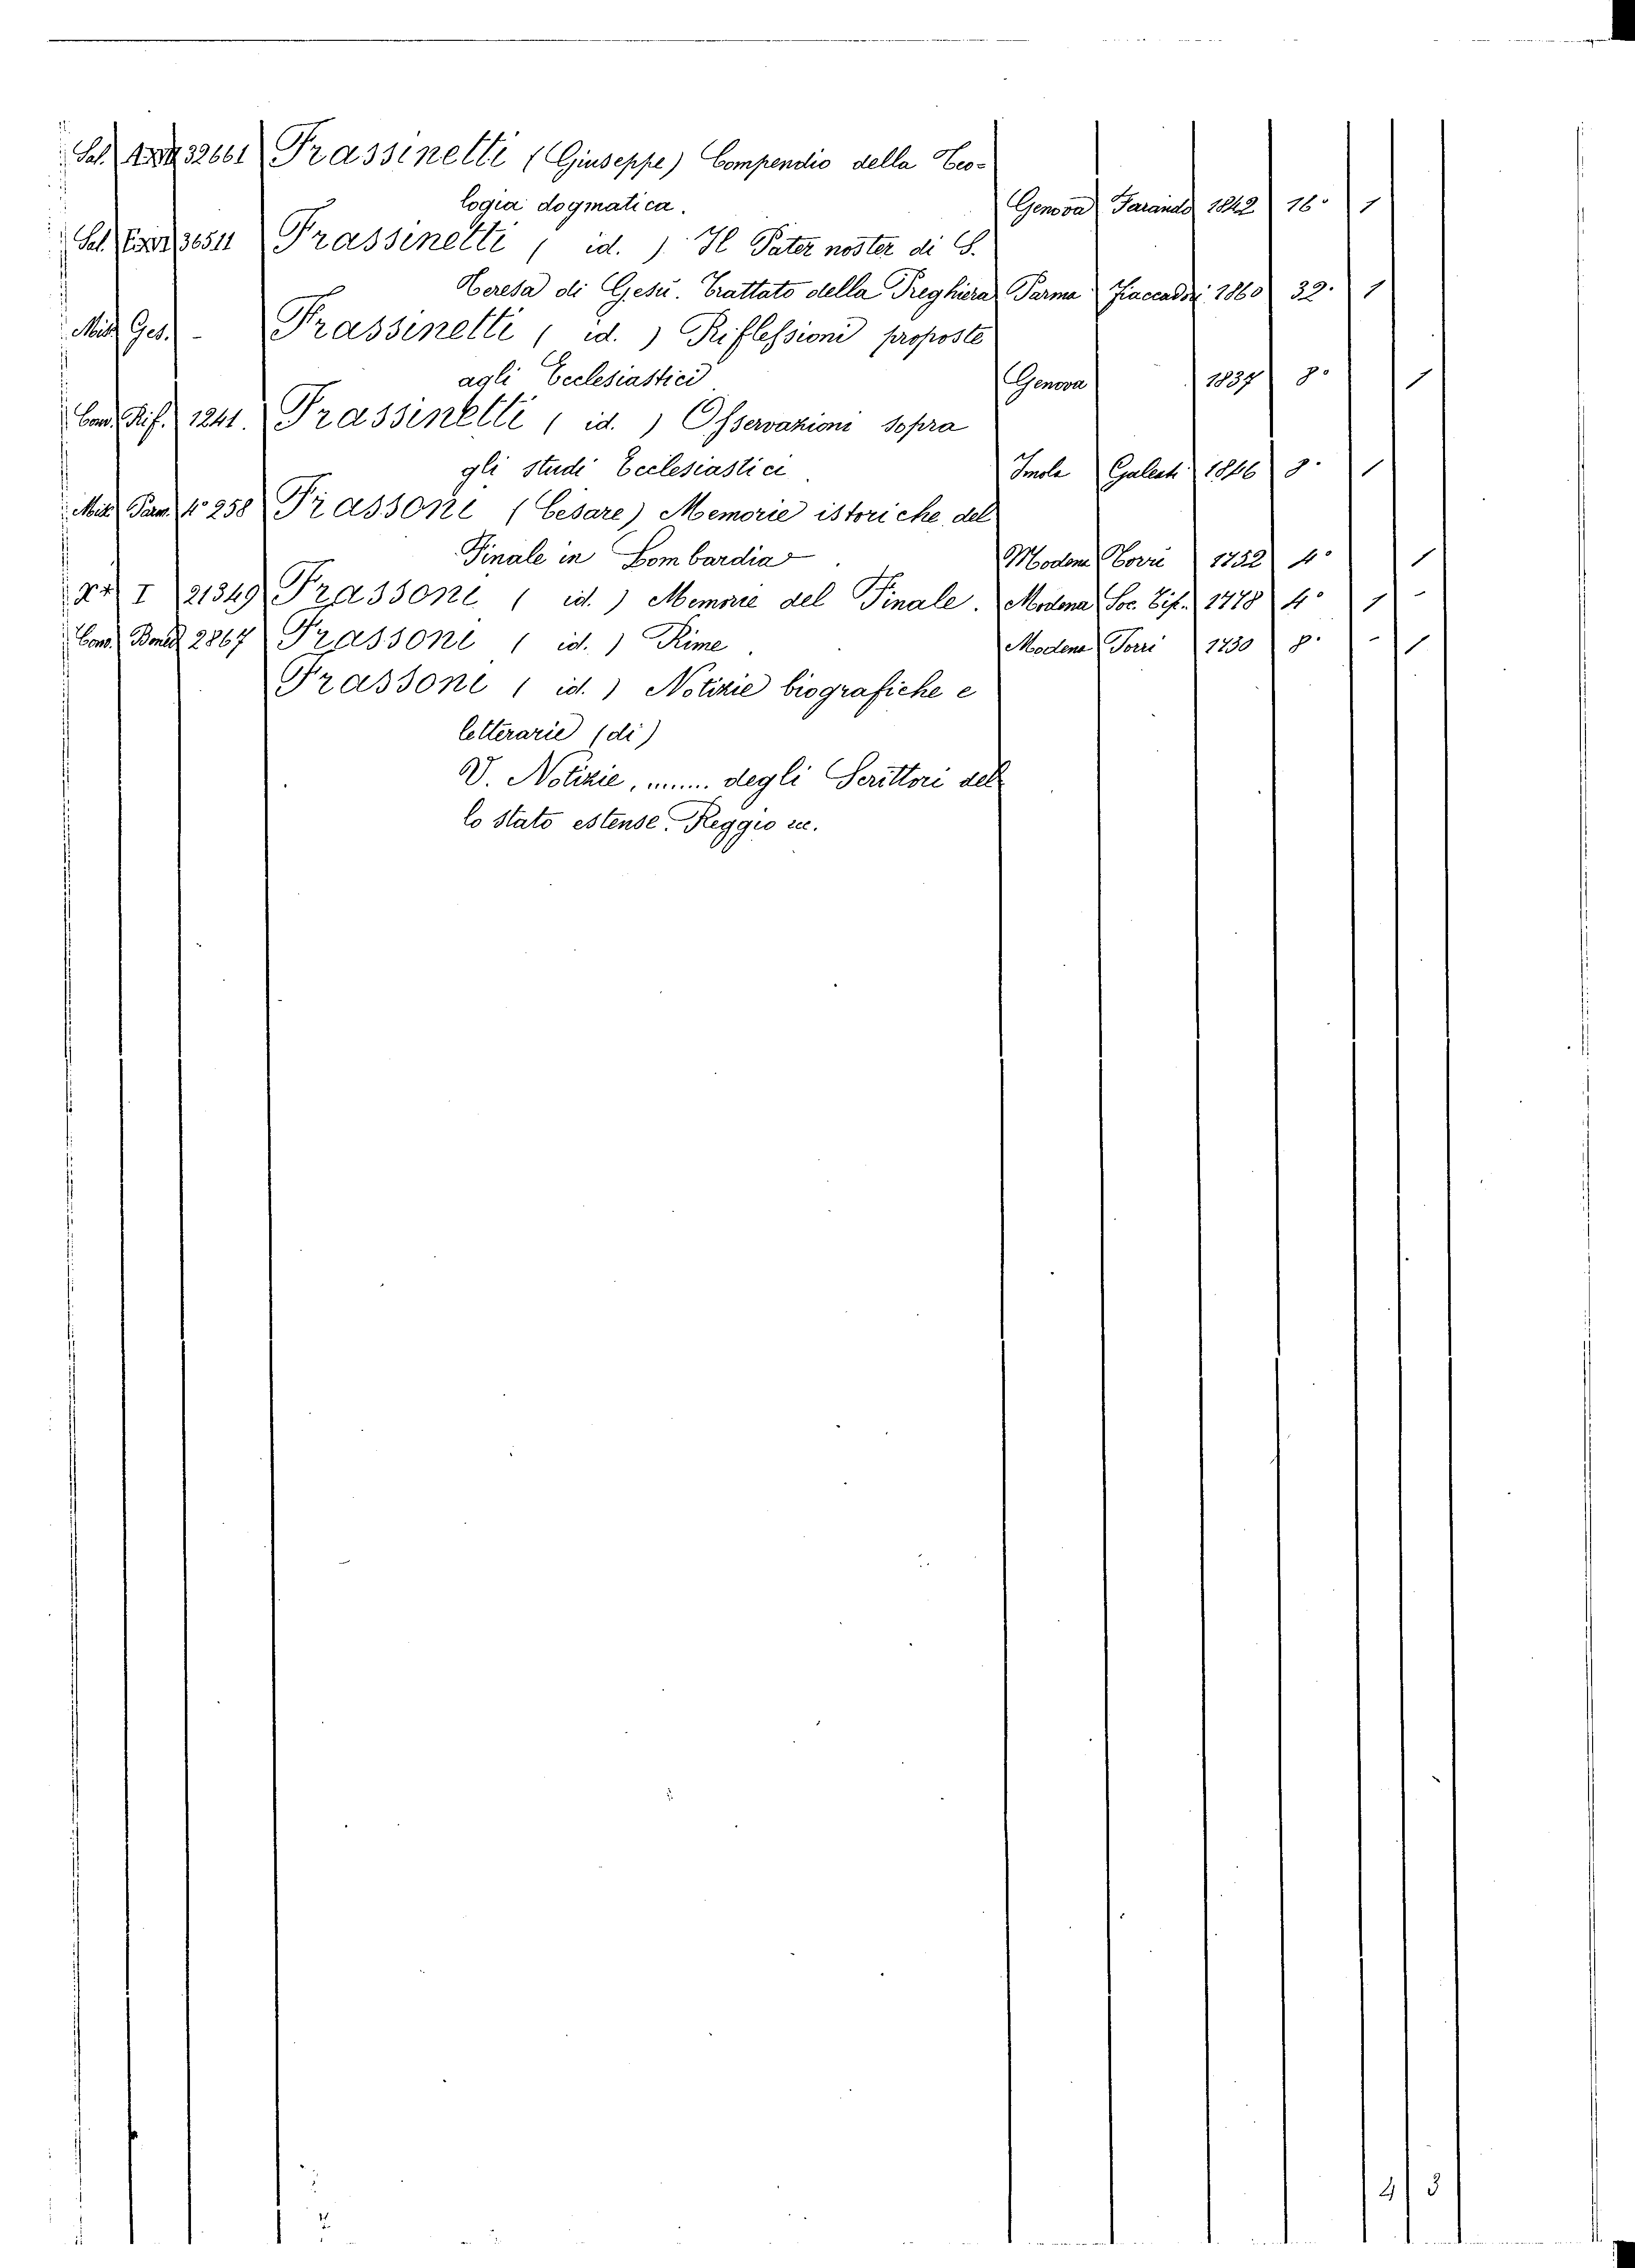 Sal. 32661 Frassinetti (Giuseppe) Compendio della Teo-
logia dogmatica. Genova Farando 1842 16° 1
Sal. 36511 Frassinetti ( id. ) Il Pater noster di S.
Teresa di Gesù. Trattato della Preghiera Parma Fiaccadori 1860 32° 1
Misc. Ges. - Frassinetti ( id. ) Riflessioni proposte
agli Ecclesiastici Genova 1837 8° 1
Com. Rif. 1241. Frassinetti ( id. ) Osservazioni sopra
gli studi Ecclesiastici Imola Galeati 1846 8° 1
Misc. Parm. 4° 258 Frassoni (Cesare) Memorie istoriche del
Finale in Lombardia Modena Torri 1752 4° 1
I 21349 Frassoni ( id. ) Memorie del Finale. Modena Soc. Tip. 1778 4° 1 -
Com. Bened 2867 Frassoni ( id. ) Rime. Modena Torri 1730 8° - 1
Frassoni ( id. ) Notizie biografiche e
letterarie (di)
V. Notizie, ...... degli Scrittori del-
lo stato estense. Reggio ec.
4 3